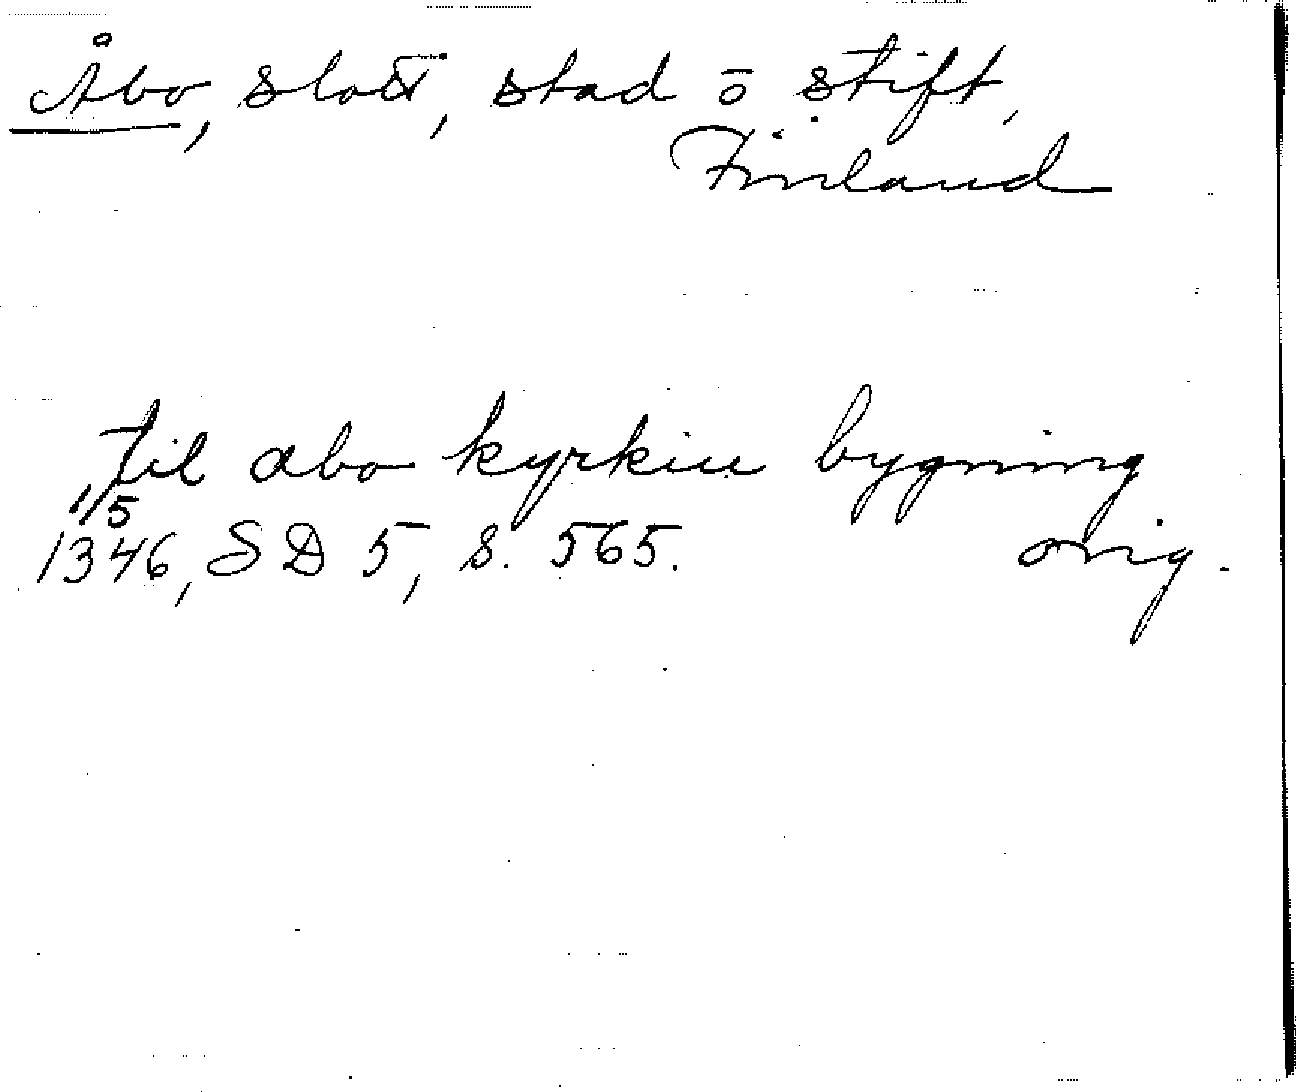 Åbo, slott, stad o stift,
Finland
til abo kyrkiu bygning
1/5
1346, SD 5, s. 565. orig.